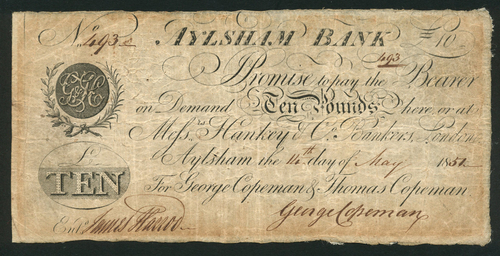 No. 493 AYLSHAM BANK £10
493
I Promise to pay the Bearer
on Demand Ten Pounds here or at
Messrs. Hankey & Co. Bankers, London
Aylsham the 14th day of May 1851
£
TEN
For George Copeman & Thomas Copeman
George Copeman
Entd. James